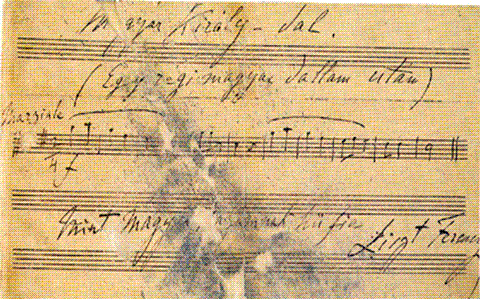 Magyar Király-dal.
(Egy régi magyar dallam után)
Marziale
f
Mint magyar, hű fia
Liszt Ferencz